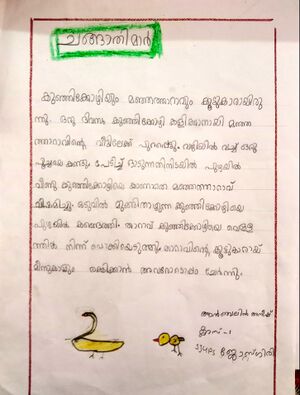 ചങ്ങാതിമാർ
കുഞ്ഞിക്കോഴിയും മഞ്ഞത്താറാവും കൂട്ടുകാരായിരു
ന്നു. ഒരു ദിവസം കുഞ്ഞിക്കോഴി കളിക്കാനായി മഞ്ഞ
ത്താറാവിന്റെ വീട്ടിലേക്ക് പുറപ്പെട്ടു. വഴിയിൽ വച്ച് ഒരു
പൂച്ചയെ കണ്ടു. പേടിച്ച് ഓടുന്നതിനിടയിൽ പുഴയിൽ
വീണു. കുഞ്ഞിക്കോഴിയെ കാണാതെ മഞ്ഞത്താറാവ്
വിഷമിച്ചു. ഒടുവിൽ മുങ്ങിത്താഴുന്ന കുഞ്ഞിക്കോഴിയെ
പുഴയിൽ കണ്ടെത്തി. താറാവ് കുഞ്ഞിക്കോഴിയെ വെള്ള
ത്തിൽ നിന്ന് രക്ഷപ്പെടുത്തി. താറാവിന്റെ കൂട്ടുകാരായ
മീനുകളും അവരോടൊപ്പം ചേർന്നു.
ക്ലാസ്-1
ജോസ്ഗിരി